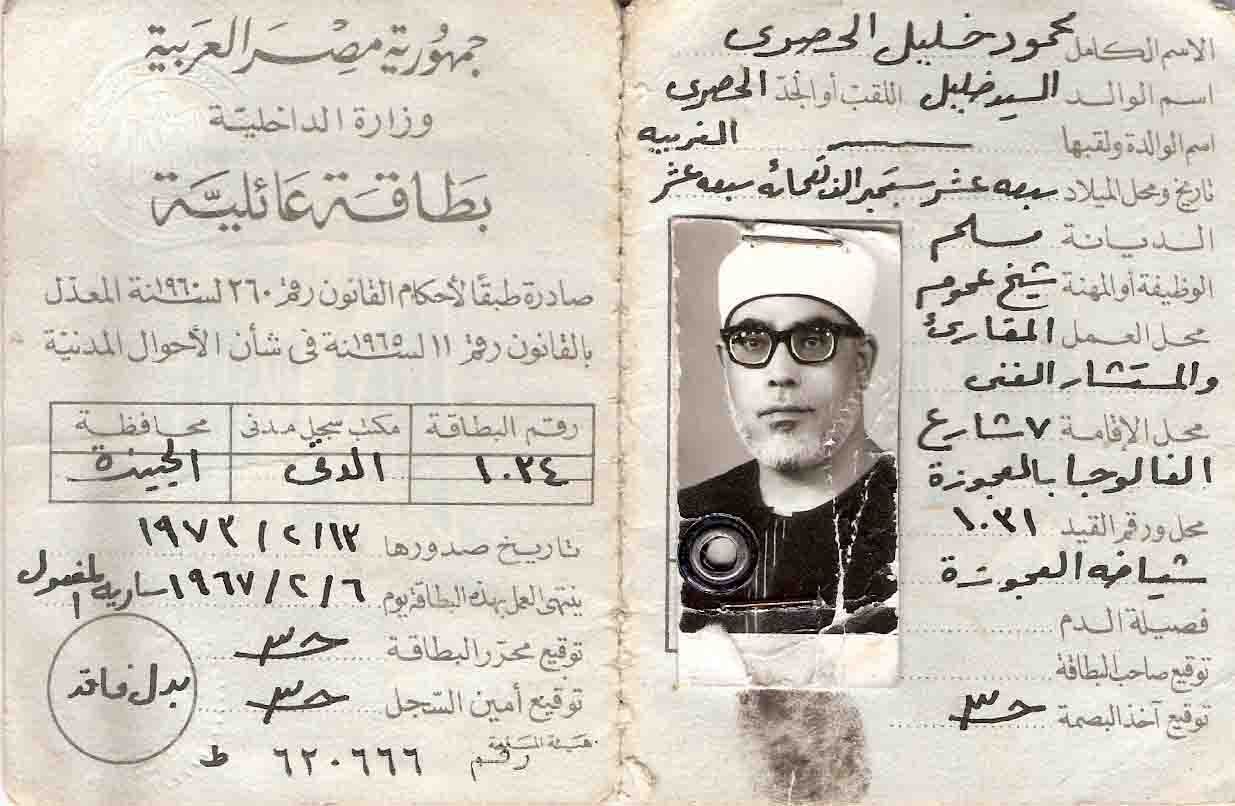 الاسم الكامل محمود خليل الحصرى
اسم الوالد السيد خليل اللقب أو الجد الحصرى
اسم الوالدة ولقبها الغربيه
تاريخ ومحل الميلاد سبعه عشر سبتمبر الف تسعمائه سبعه عشر
الديانة مسلم
الوظيفة أو المهنة شيخ عموم
محل العمل المقارئ
والمستشار الفنى
محل الإقامة ٧ شارع
الفالوجا بالعجوزة
محل ورقم القيد ١٠٣١
شياخه العجوزة
فصيلة الدم
توقيع صاحب البطاقة
توقيع آخذ البصمة
جمهورية مصر العربية
وزارة الداخلية
بطاقة عائلية
صادرة طبقا لأحكام القانون رقم ٢٦٠ لسنة ١٩٦٠ المعدل
بالقانون رقم ١١ لسنة ١٩٦٥ فى شأن الأحوال المدنية
رقم البطاقة مكتب سجل مدنى محافظة
١٠٣٤ الدقى الجيزة
تاريخ صدورها ١٩٧٣/٢/١٣
ينتهى العمل بهذه البطاقة يوم ١٩٦٧/٢/٦ سارية المفعول
توقيع محرر البطاقة
توقيع أمين السجل
بدل فاقد
رقم ٦٢٠٦٦٦ ط